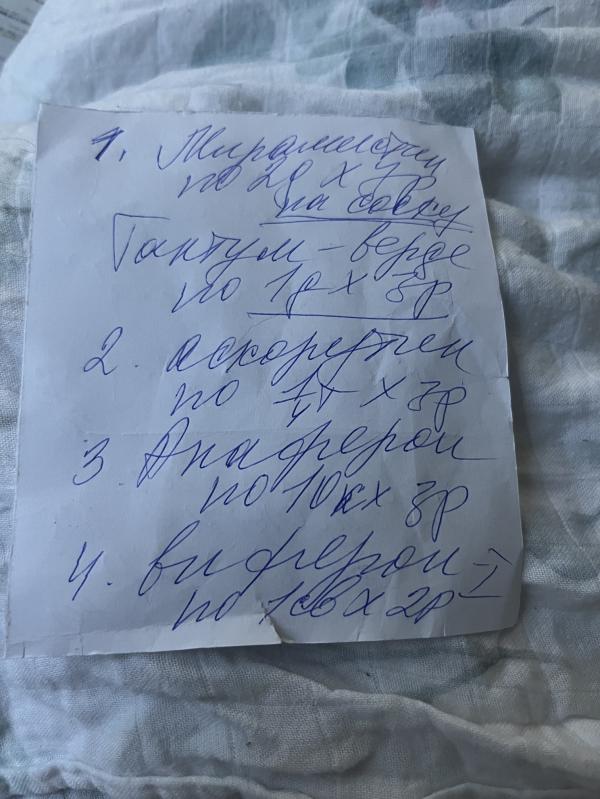 1. Мирамистин
по 2д х 4р
на соску
Тантум - верде
по 1д х 3р
2. аскорутин
по т х 3р
3 Анаферон
по 10к х 3р
4. виферон - I
по 1св х 2р